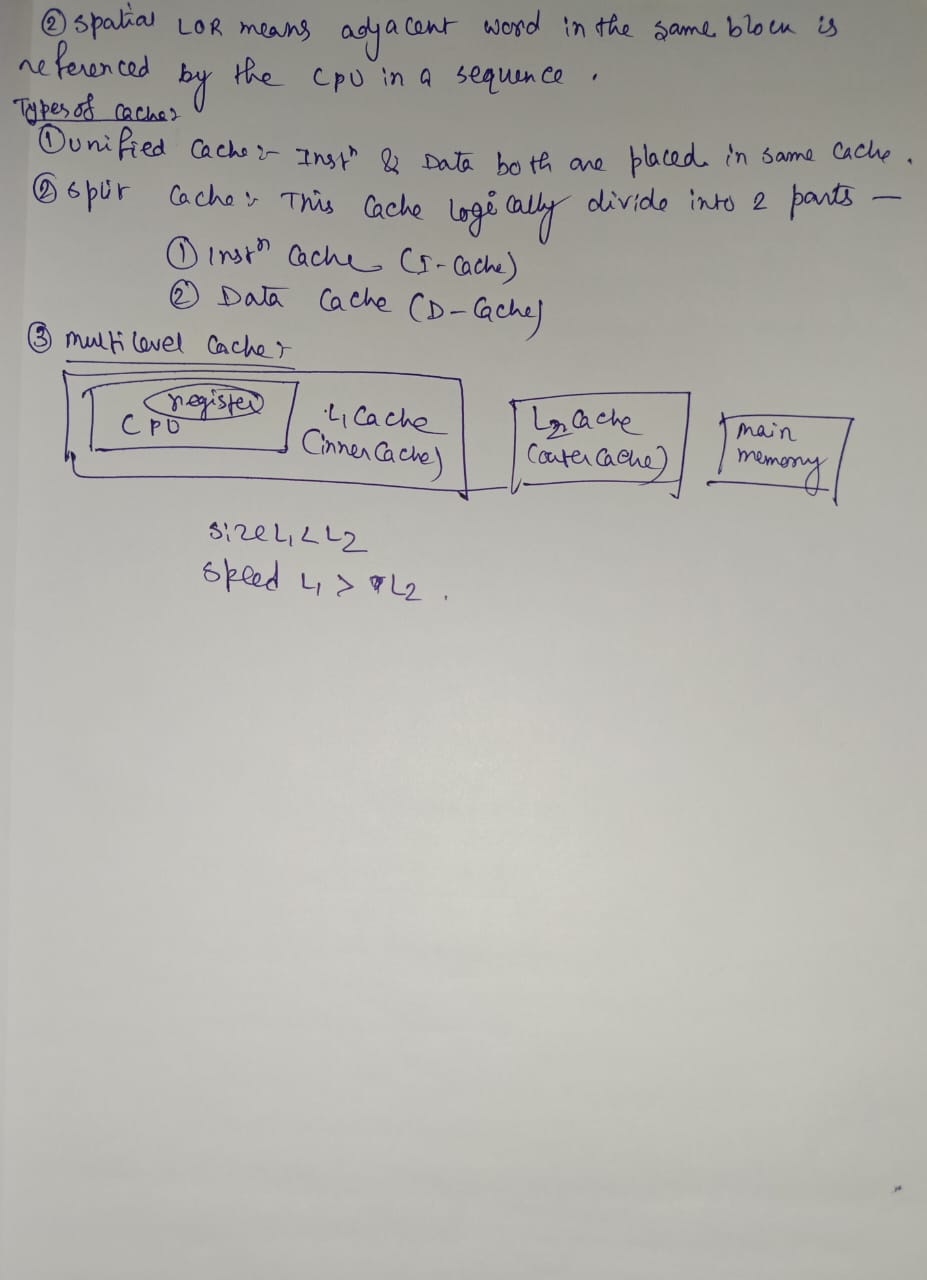 ② Spatial LOR means adjacent word in the same block is
referenced by the CPU in a sequence.
Types of Cache:
① Unified Cache:- Instⁿ & Data both are placed in same Cache.
② Split Cache:- This Cache logically divide into 2 parts —
① Instⁿ Cache (I-Cache)
② Data Cache (D-Cache)
③ Multilevel Cache:
register
CPU
L₁ Cache
(inner Cache)
L₂ Cache
(outer Cache)
main
memory
Size L₁ < L₂
Speed L₁ > L₂.